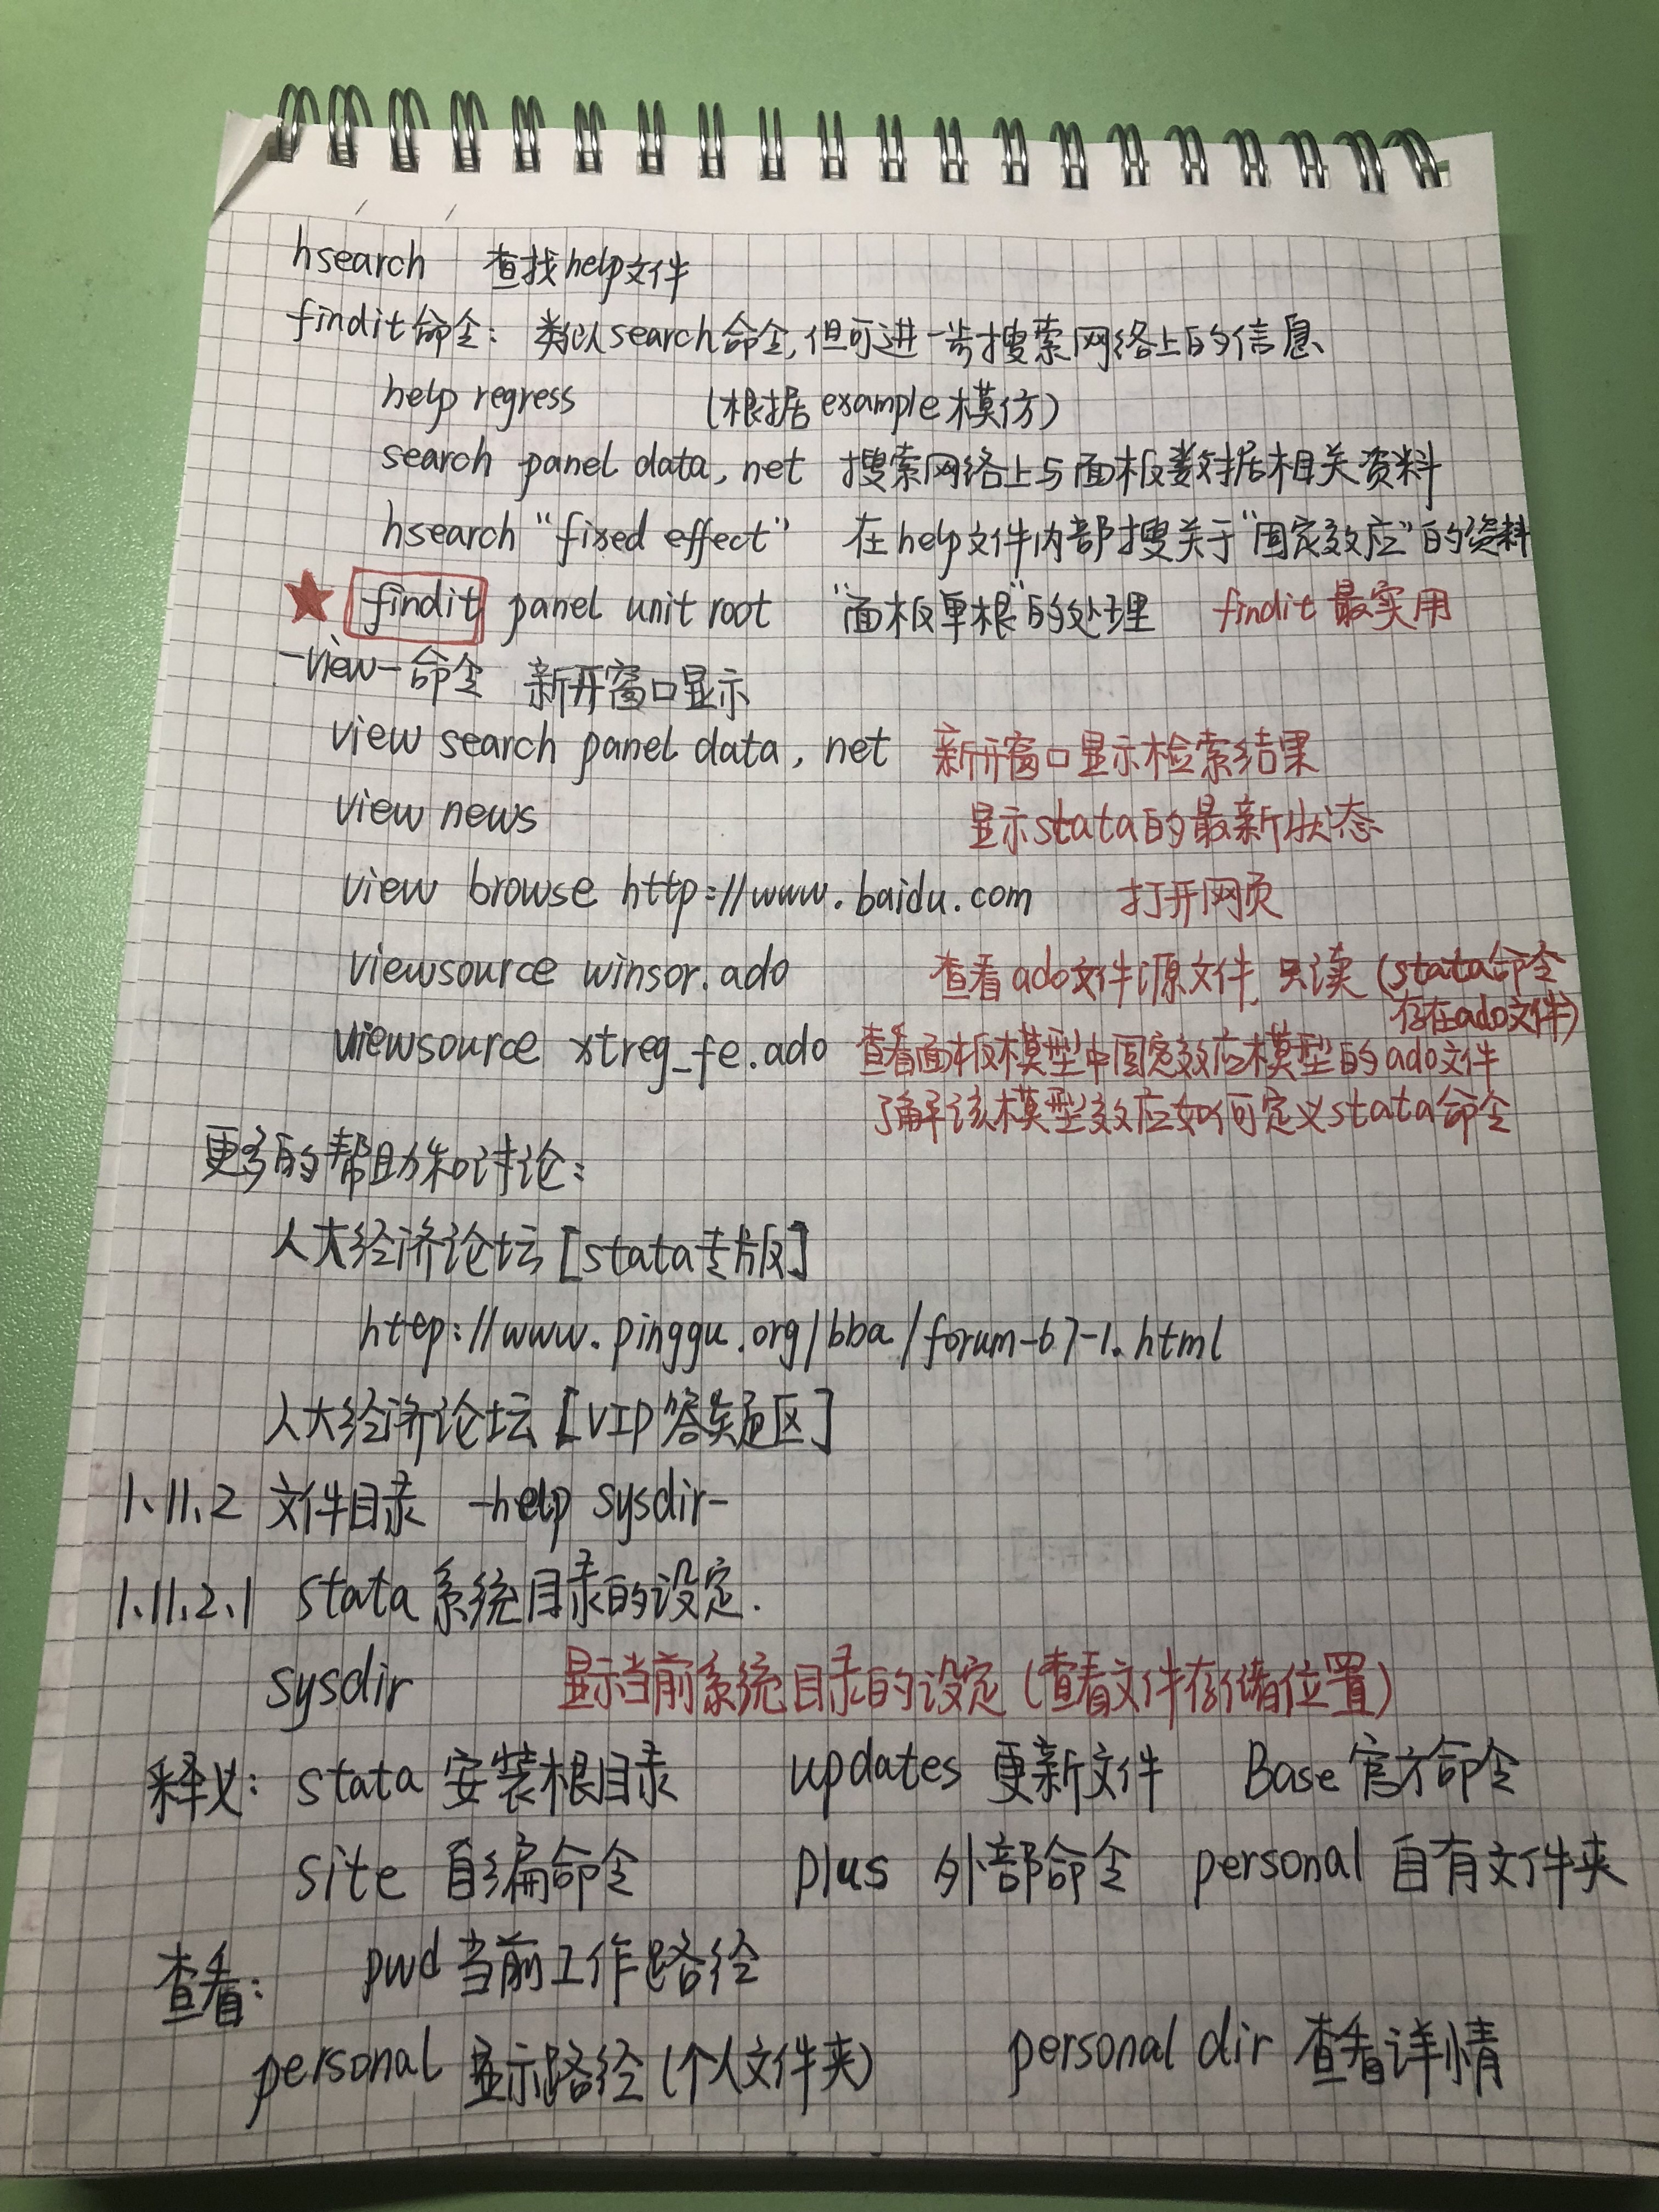 hsearch 查找help文件
findit命令：类似search命令,但可进一步搜索网络上的信息
help regress (根据example模仿)
search panel data, net 搜索网络上与面板数据相关资料
hsearch "fixed effect" 在help文件内部搜关于"固定效应"的资料
★ findit panel unit root "面板单根"的处理 findit最实用
-view-命令 新开窗口显示
view search panel data, net 新开窗口显示检索结果
view news 显示stata的最新状态
view browse http://www.baidu.com 打开网页
viewsource winsor.ado 查看ado文件源文件,只读(stata命令
存在ado文件)
viewsource xtreg_fe.ado 查看面板模型中固定效应模型的ado文件
了解该模型效应如何定义stata命令
更多的帮助和讨论：
人大经济论坛[stata专版]
http://www.pinggu.org/bba/forum-67-1.html
人大经济论坛[VIP答疑区]
1.11.2 文件目录 -help sysdir-
1.11.2.1 stata系统目录的设定.
sysdir 显示当前系统目录的设定(查看文件存储位置)
释义：stata 安装根目录 updates 更新文件 Base 官方命令
site 自编命令 plus 外部命令 personal 自有文件夹
查看： pwd 当前工作路径
personal 显示路径(个人文件夹) personal dir 查看详情